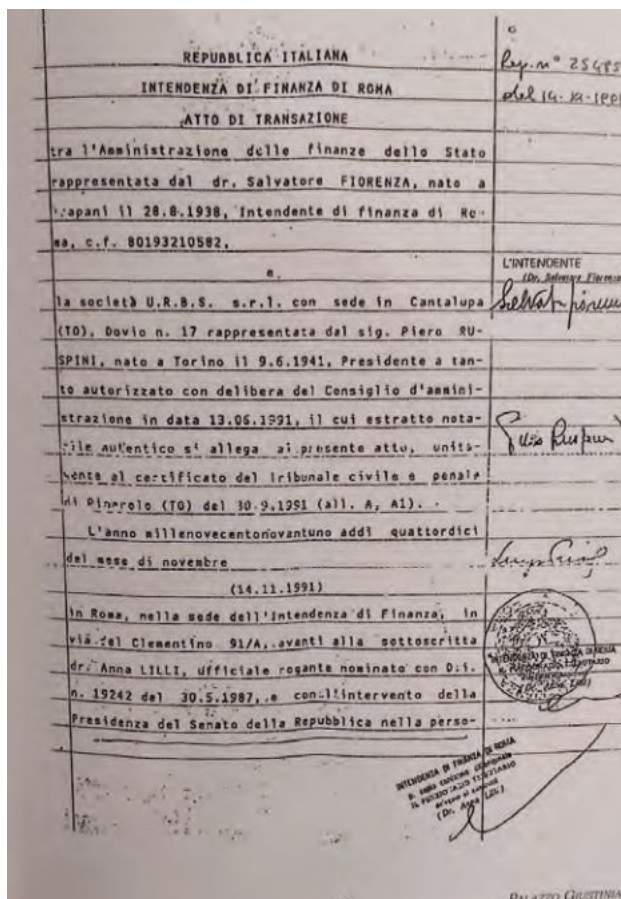 REPUBBLICA ITALIANA
Rep. n° 25485
INTENDENZA DI FINANZA DI ROMA
del 14-XI-1991
ATTO DI TRANSAZIONE
tra l'Amministrazione delle finanze dello Stato
rappresentata dal dr. Salvatore FIORENZA, nato a
Trapani il 28.8.1938, Intendente di finanza di Ro-
ma, c.f. 80193210582,
L'INTENDENTE
(Dr. Salvatore Fiorenza)
e
la società U.R.B.S. s.r.l. con sede in Cantalupa
(TO), Dovio n. 17 rappresentata dal sig. Piero RU-
SPINI, nato a Torino il 9.6.1941, Presidente a tan-
to autorizzato con delibera del Consiglio d'ammini-
strazione in data 13.06.1991, il cui estratto nota-
rile autentico si allega al presente atto, unita-
mente al certificato del Tribunale civile e penale
di Pinerolo (TO) del 30.9.1991 (all. A, A1).
L'anno millenovecentonovantuno addì quattordici
del mese di novembre
(14.11.1991)
in Roma, nella sede dell'Intendenza di Finanza, in
via del Clementino 91/A, avanti alla sottoscritta
dr. Anna LILLI, ufficiale rogante nominato con D.i.
n. 19242 del 30.5.1987, e con l'intervento della
Presidenza del Senato della Repubblica nella perso-
INTENDENZA DI FINANZA DI ROMA
(Dr. Anna Lilli)
PALAZZO GIUSTINIA